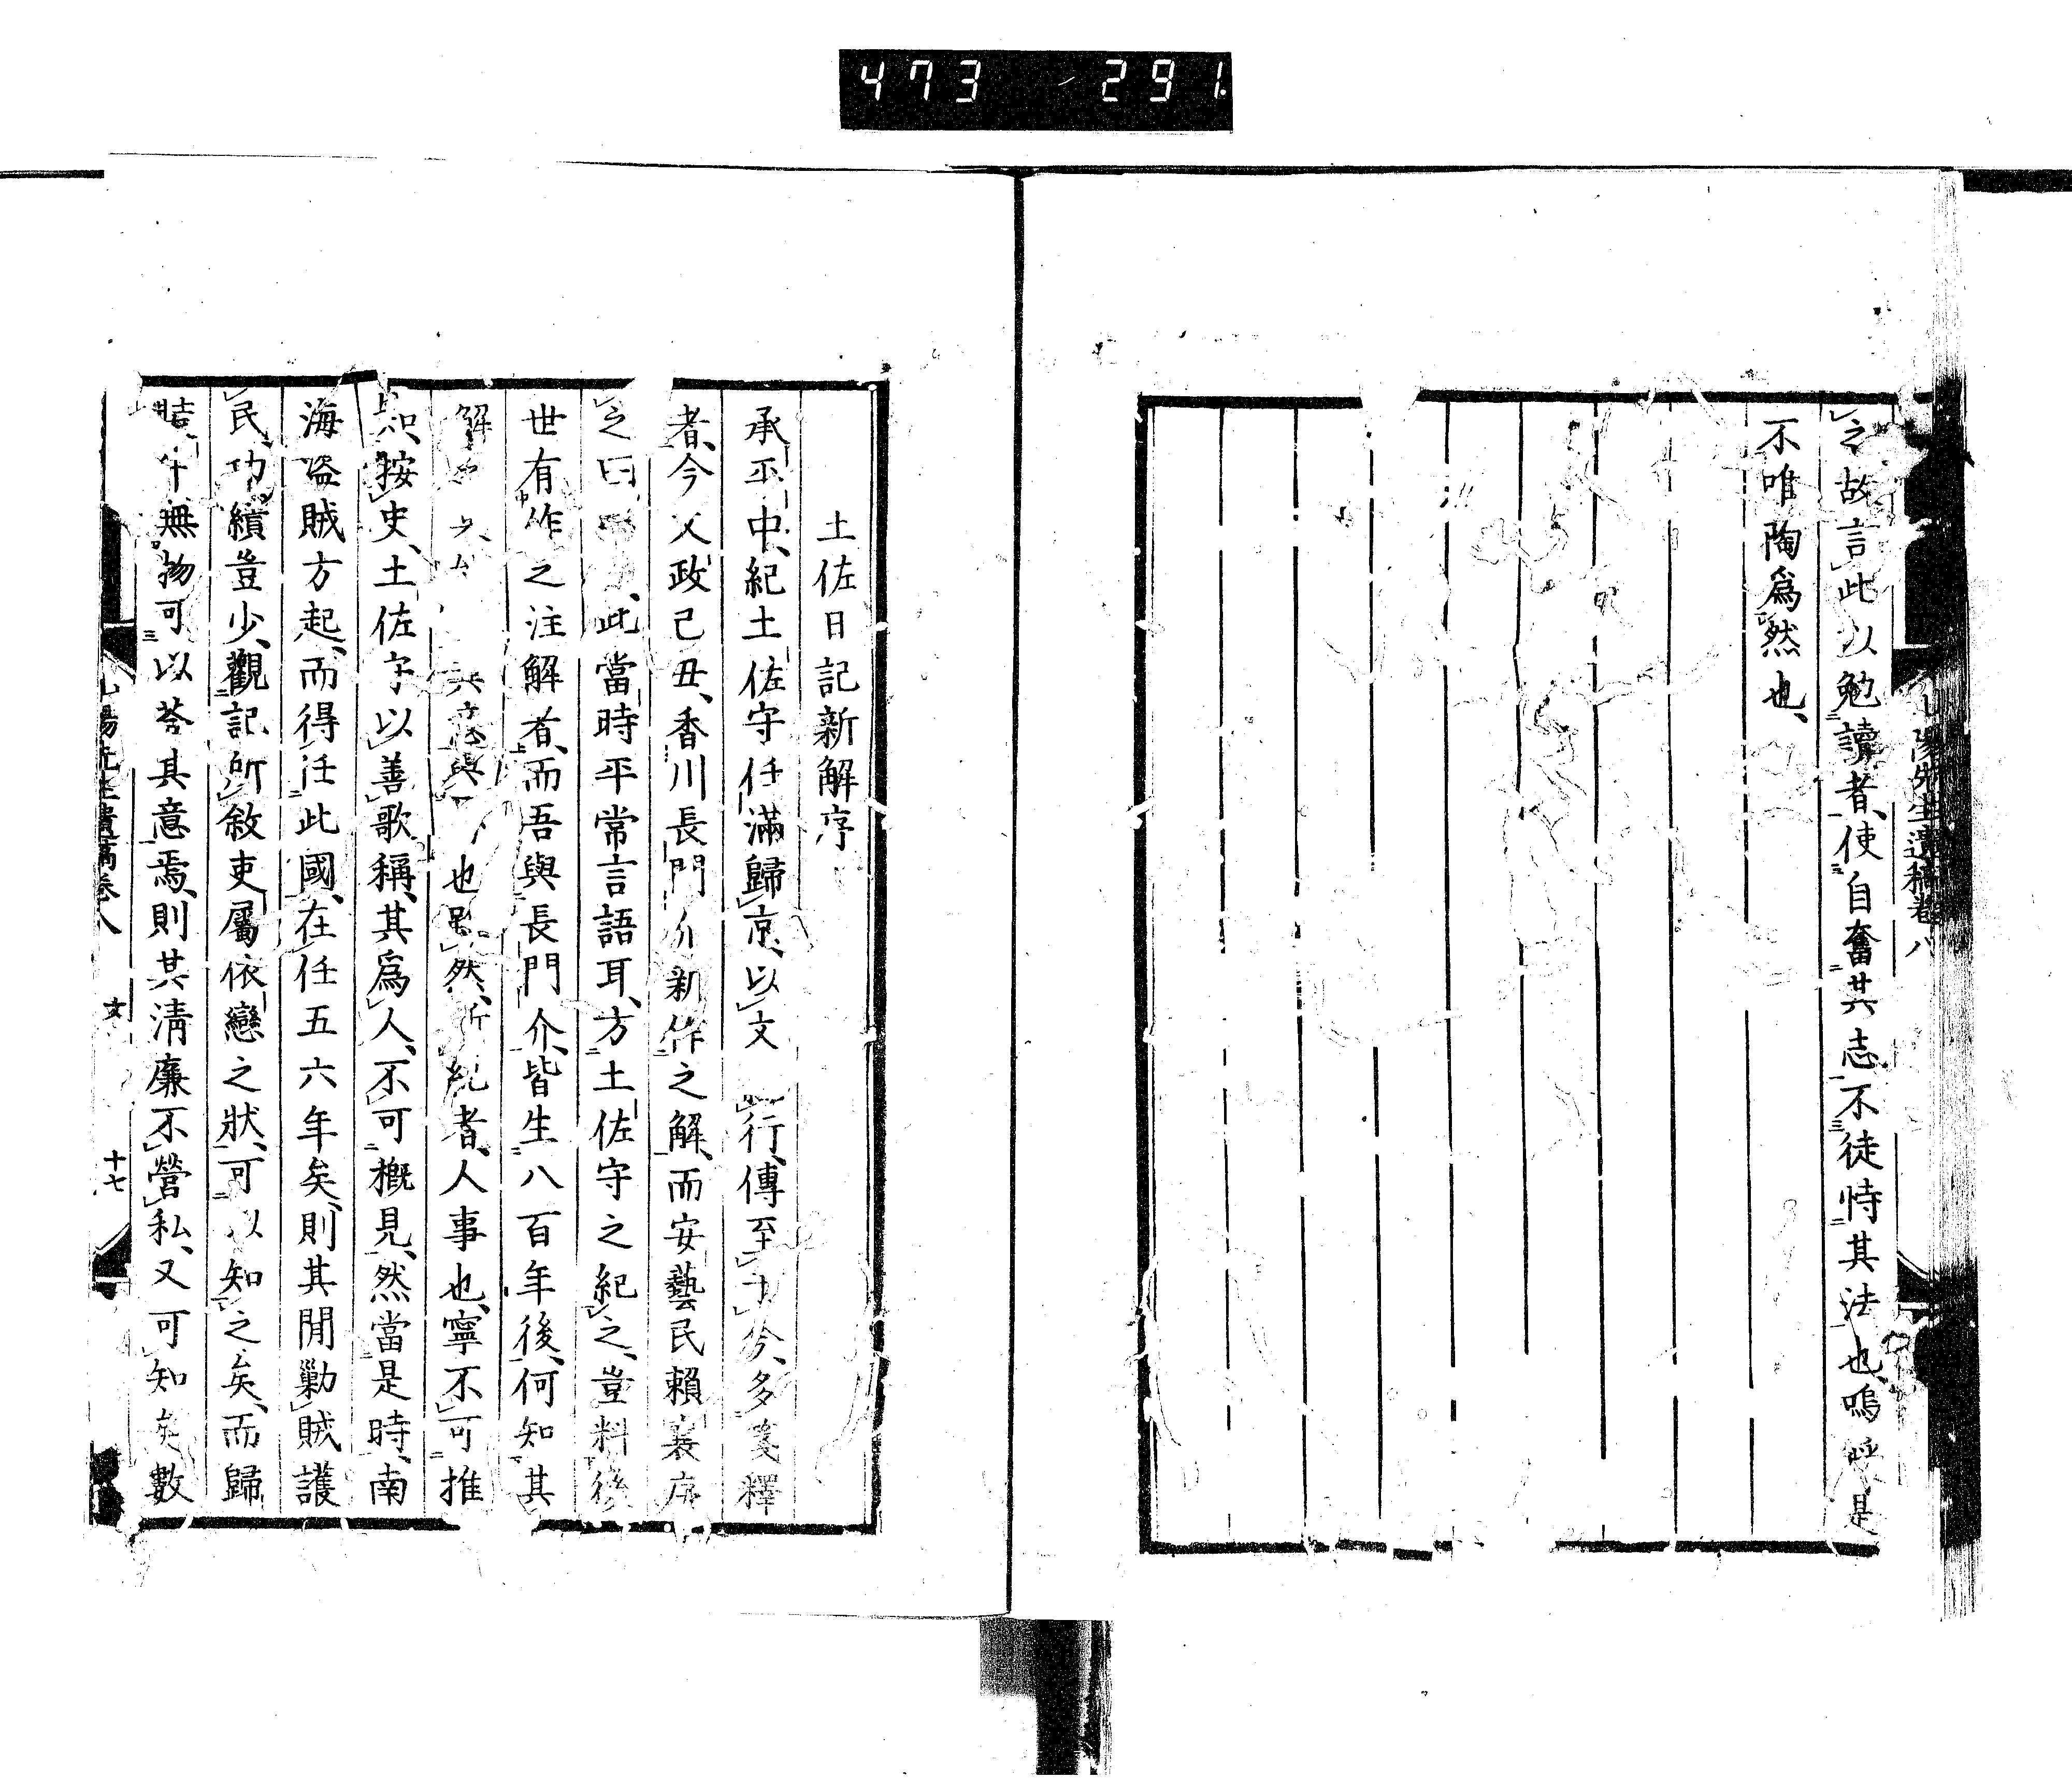 473-291.
山陽先生遺稿卷八
之故言此以勉讀者、使自奮其志不徒恃其法也、嗚呼是
不唯陶爲然也、
土佐日記新解序
承平中、紀土佐守任滿歸京、以文 行、傳至于今、多箋釋
者、今文政己丑、香川長門介新作之解、而安藝民賴襄序
之曰 、此當時平常言語耳、方土佐守之紀之、豈料後
世有作之注解者、而吾與長門介、皆生八百年後、何知其
解 與 也雖然、所紀者、人事也、寧不可推
知、按史、土佐守以善歌稱、其爲人、不可概見、然當是時、南
海盜賊方起、而得任此國、在任五六年矣、則其間勦賊護
民、功績豈少、觀記所敘吏屬依戀之狀、可以知之矣、而歸
時 無物可以荅其意焉、則其清廉不營私、又可知矣數
山陽先生遺稿卷八
文
十七